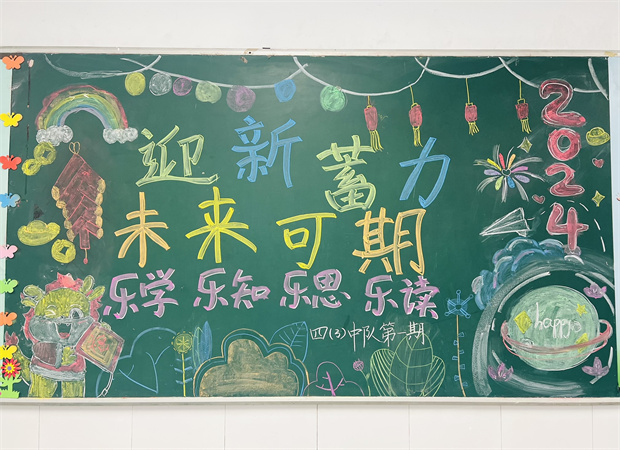 迎新蓄力
未来可期
乐学 乐知 乐思 乐读
四(3)中队第一期
2024
happy